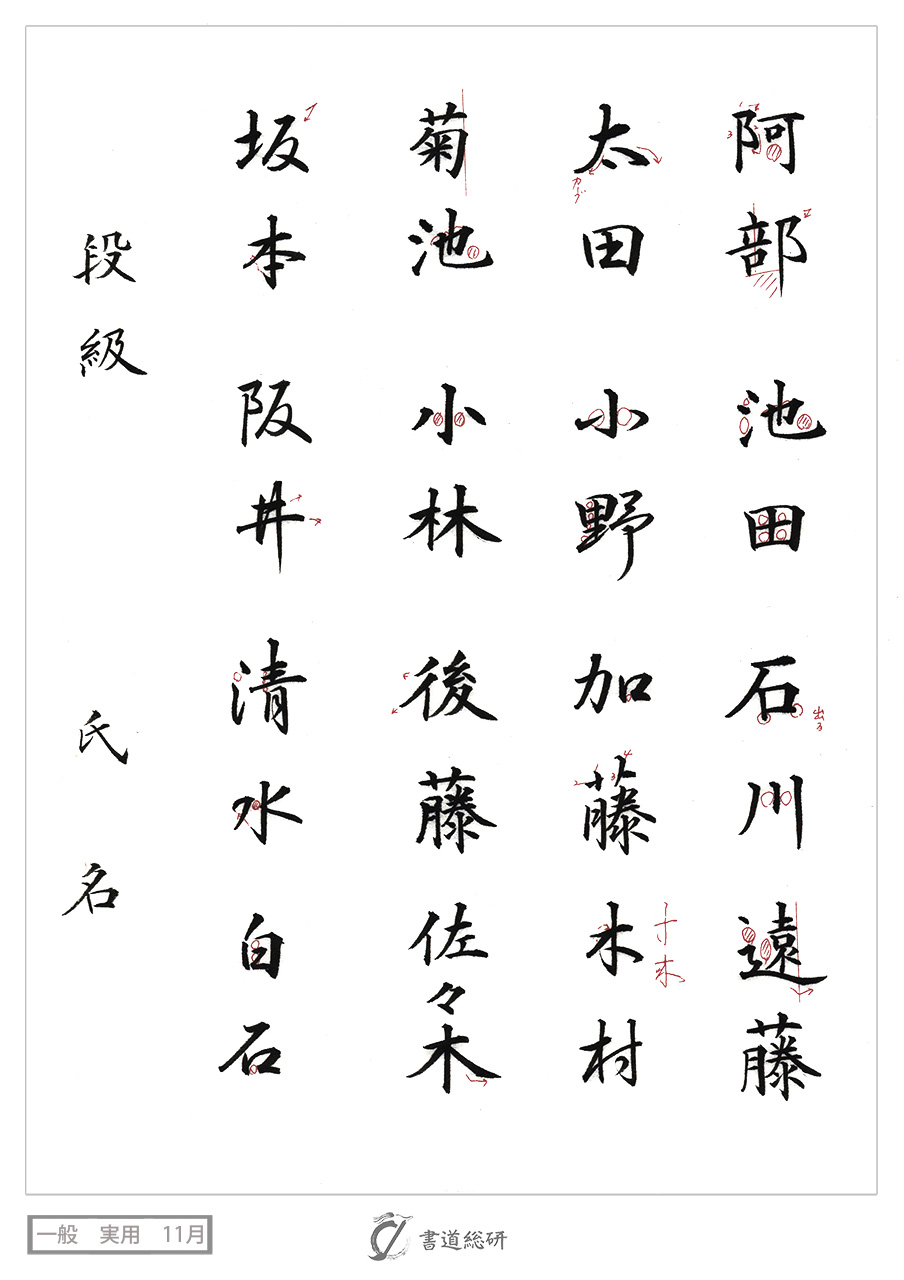 阿部 池田 石川 遠藤
太田 小野 加藤 木村
菊池 小林 後藤 佐々木
坂本 阪井 清水 白石
段級 氏名
カーブ
出る
一般 実用 11月
書道総研